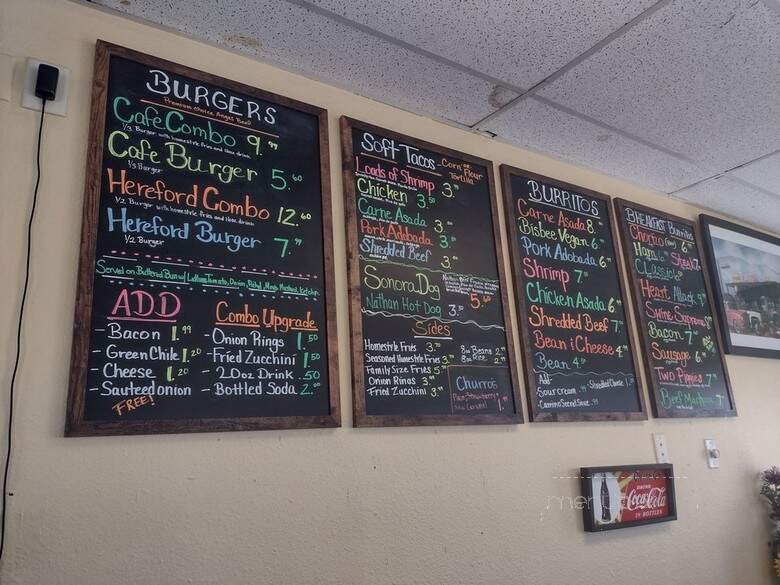 BURGERS
Premium Choice Angus Beef
Cafe Combo 9.99
1/3 Burger with homestyle fries and 16oz drink
Cafe Burger 5.60
1/3 Burger
Hereford Combo 12.60
1/2 Burger with homestyle fries and 16oz drink
Hereford Burger 7.99
1/2 Burger
Served on Buttered Bun w/ Lettuce, Tomato, Onion, Pickel, Mayo, Mustard, Ketchup
ADD
- Bacon 1.99
- Green Chile 1.20
- Cheese 1.20
- Sauteed onion
FREE!
Combo Upgrade
- Onion Rings 1.50
- Fried Zucchini 1.50
- 20oz Drink .50
- Bottled Soda 2.00
Soft Tacos - Corn or Flour
Tortilla
Loads of Shrimp 3.
Chicken 3.50
Carne Asada 3.
Pork Adobada 3.
Shredded Beef 3.
Sonora Dog 5.60
Nathan Hot Dog 3.50
Sides
Homestyle Fries 3.
Seasoned Homestyle Fries 3.
Family Size Fries 5.
Onion Rings 3.
Fried Zucchini 3.
8oz Beans 2.
8oz Rice 2.
Churros
Plain, Strawberry
Caramel 1.
BURRITOS
Carne Asada 8.
Bisbee Vegan 6.
Pork Adobada 6.
Shrimp 7.
Chicken Asada 6.
Shredded Beef 7.
Bean & Cheese 4.
Bean 4.
Add-
Sour cream .99
- Shredded Cheese
- Camino Secret Sauce .99
BREAKFAST Burritos
Chorizo 6.
Ham 6.
Steak 7.
Classic 6.
Heart Attack 9.
Swine Supreme
Bacon 7.
Sausage 6.
Two Piggies 7.
Beef 7.
DRINK
Coca-Cola
IN BOTTLES